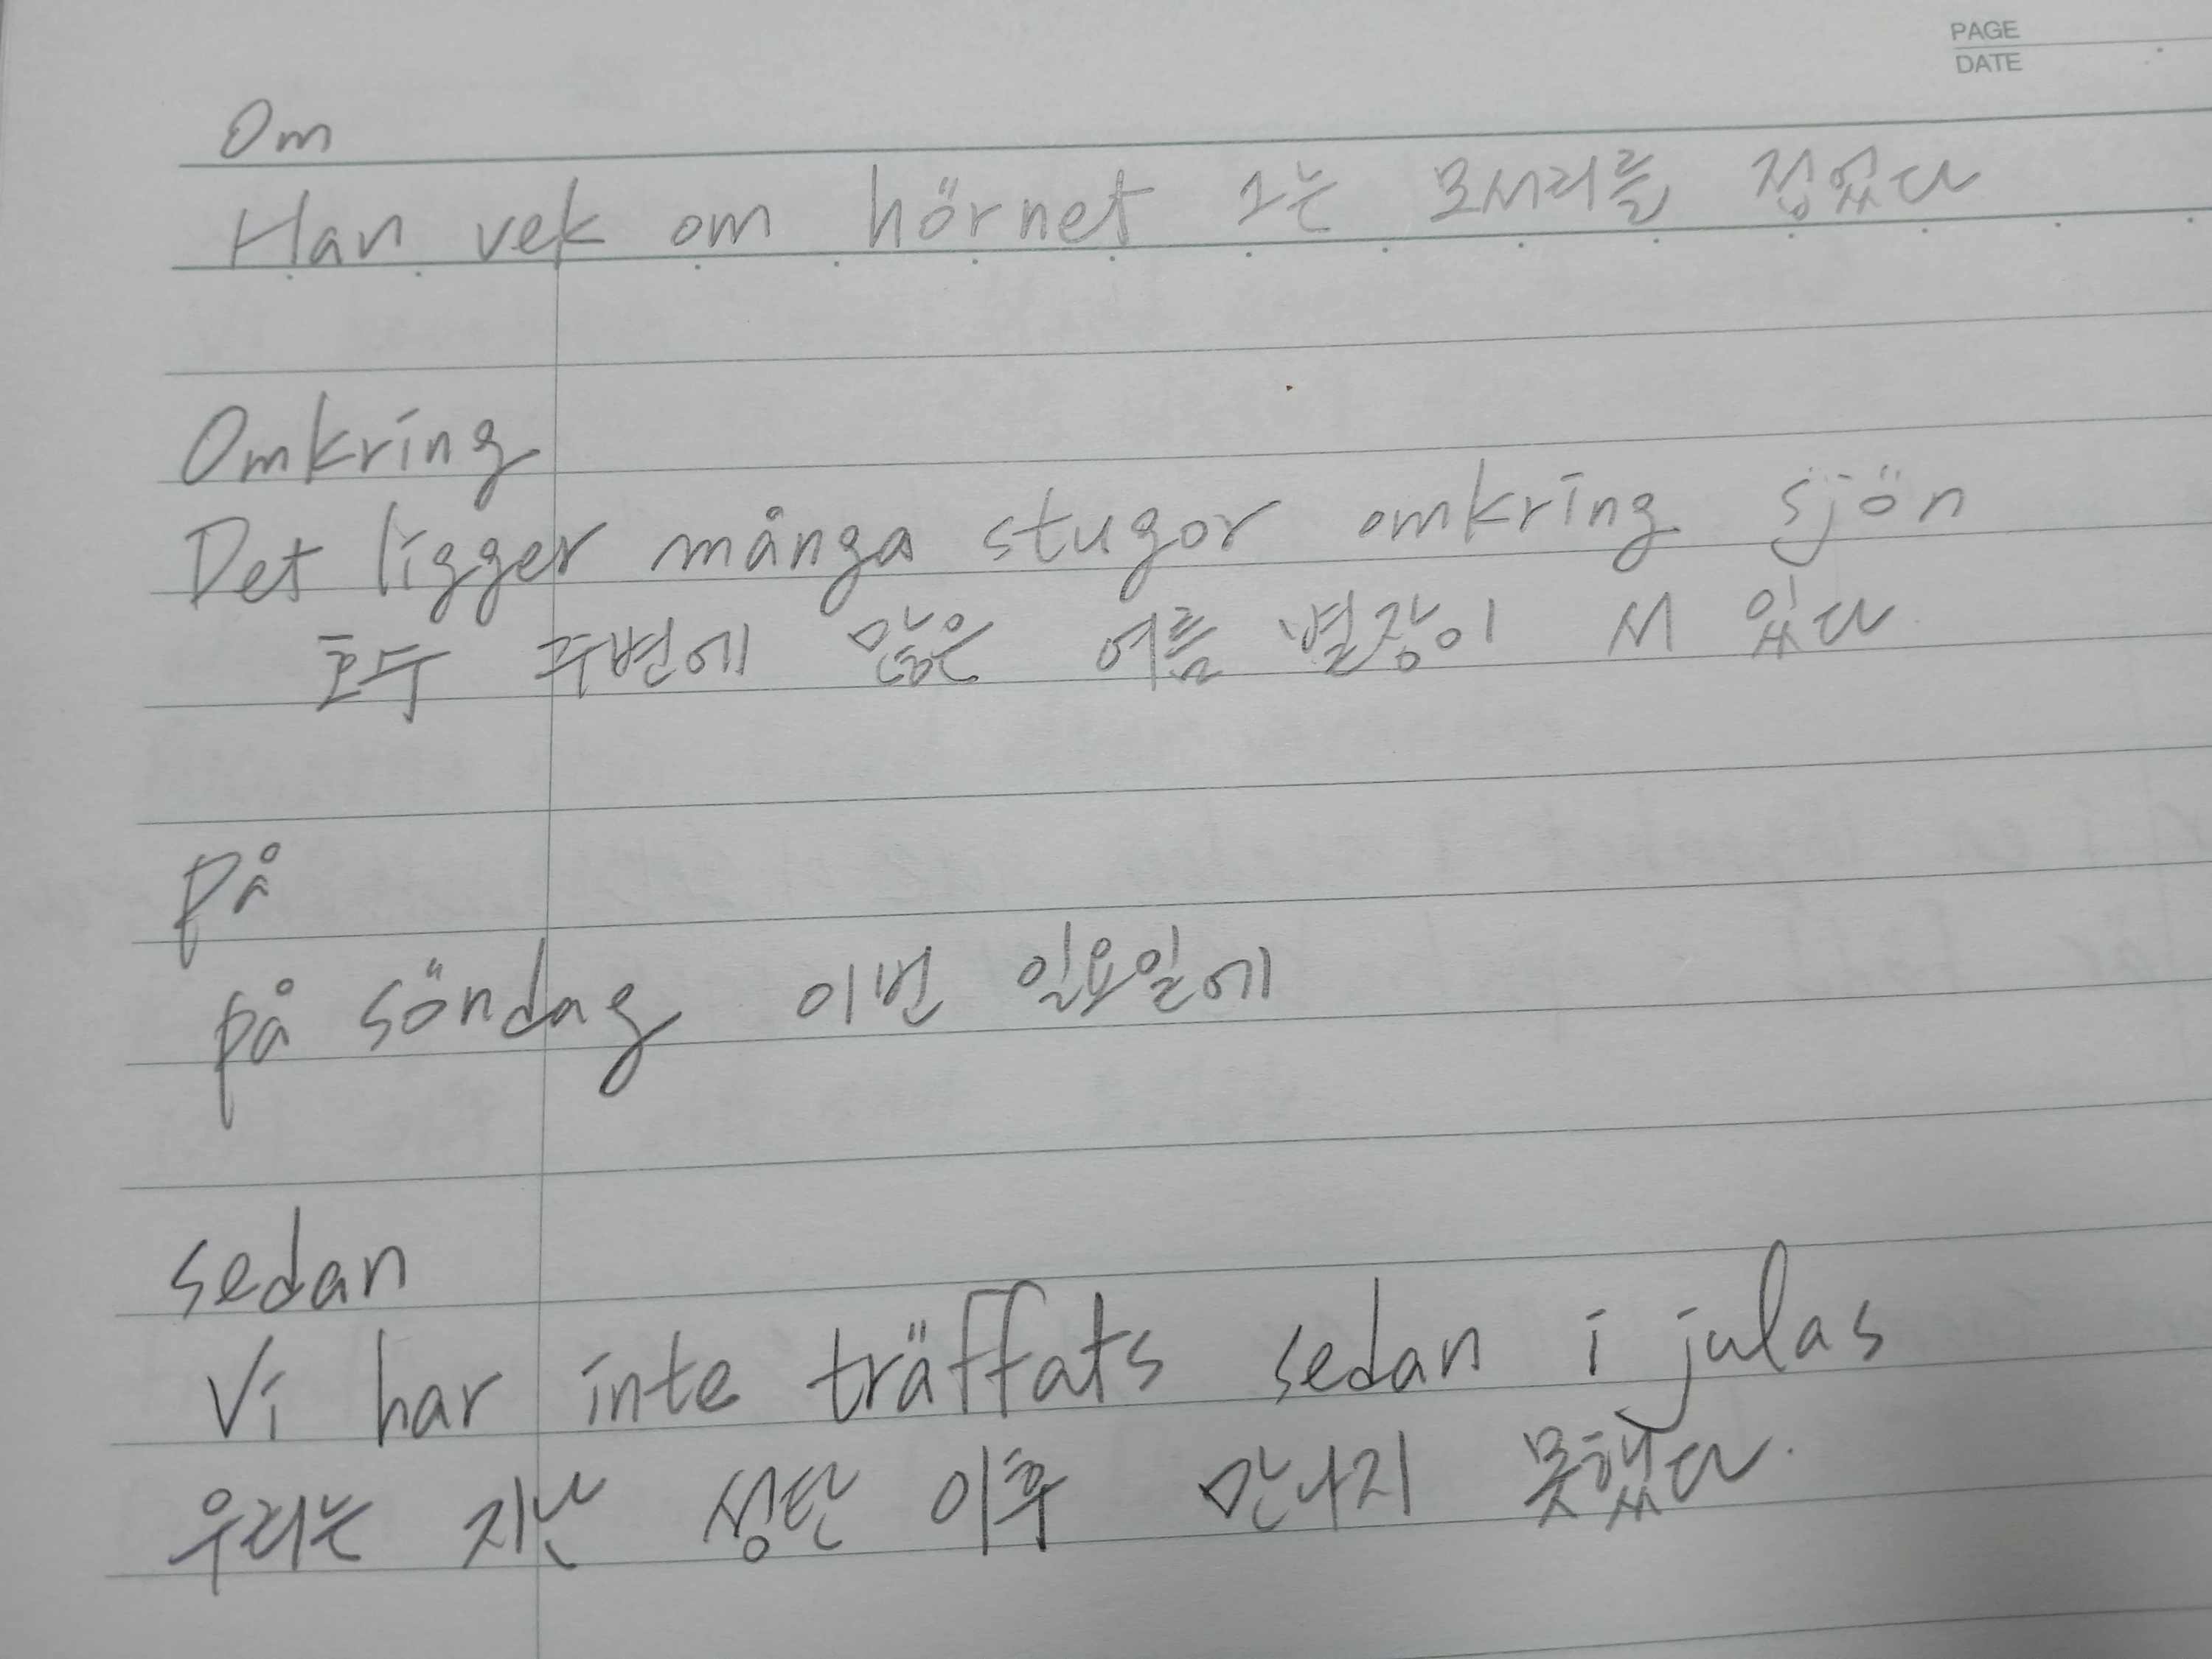 PAGE
DATE
Om
Han vek om hörnet 그는 모서리를 접었다
Omkring
Det ligger många stugor omkring sjön
호두 주변에 많은 여름 별장이 서 있다
på
på söndag 이번 일요일에
sedan
Vi har inte träffats sedan i julas
우리는 지난 성탄 이후 만나지 못했다.